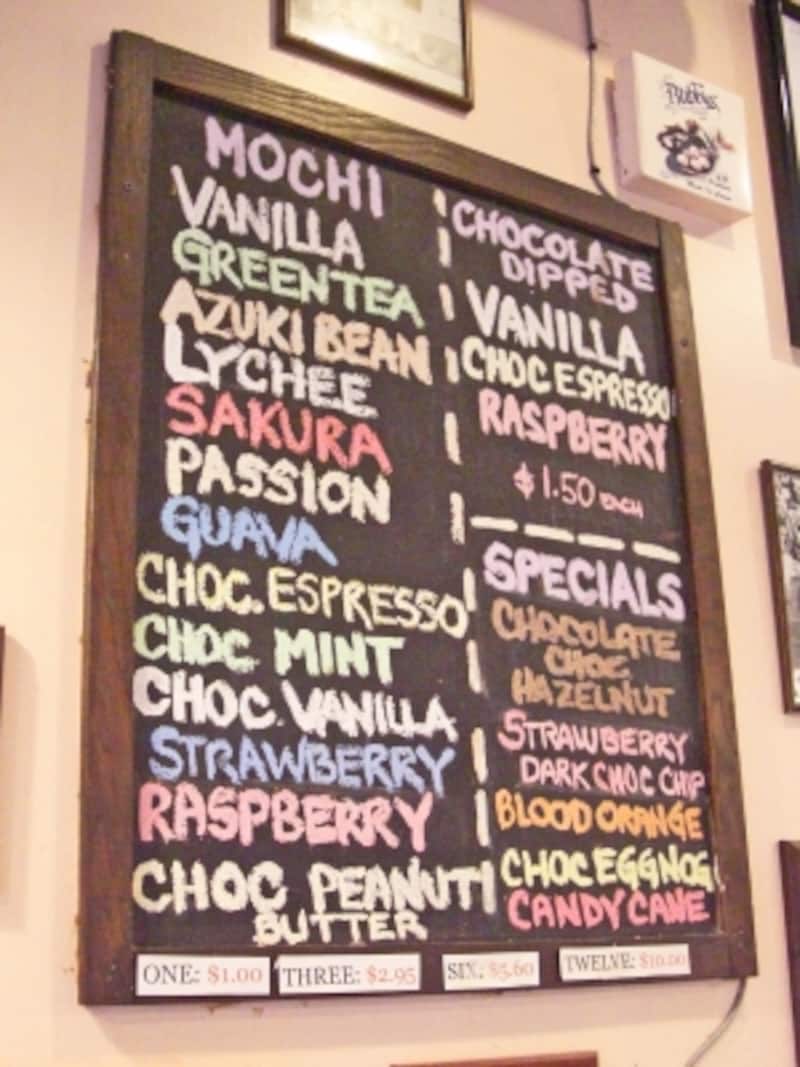 MOCHI
VANILLA
GREEN TEA
AZUKI BEAN
LYCHEE
SAKURA
PASSION
GUAVA
CHOC. ESPRESSO
CHOC MINT
CHOC. VANILLA
STRAWBERRY
RASPBERRY
CHOC PEANUT
BUTTER
CHOCOLATE
DIPPED
VANILLA
CHOC ESPRESSO
RASPBERRY
$1.50 EACH
SPECIALS
CHOCOLATE
CHOC
HAZELNUT
STRAWBERRY
DARK CHOC CHIP
BLOOD ORANGE
CHOC EGGNOG
CANDY CANE
ONE: $1.00
THREE: $2.95
SIX: $5.60
TWELVE: $10.00
Bubbies